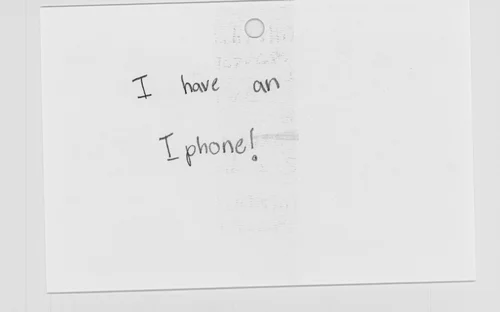 I have an
I phone!